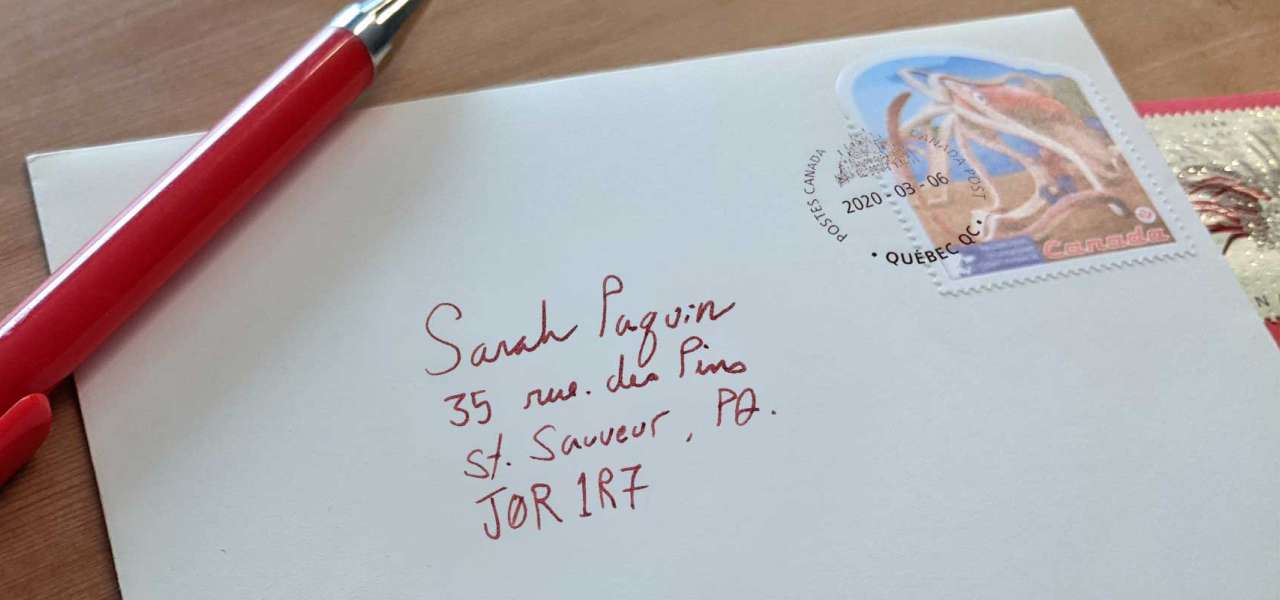 POSTES CANADA
CANADA POST
2020-03-06
QUÉBEC QC
Canada
Sarah Paquin
35 rue. des Pins
St. Sauveur, PQ.
J0R 1R7